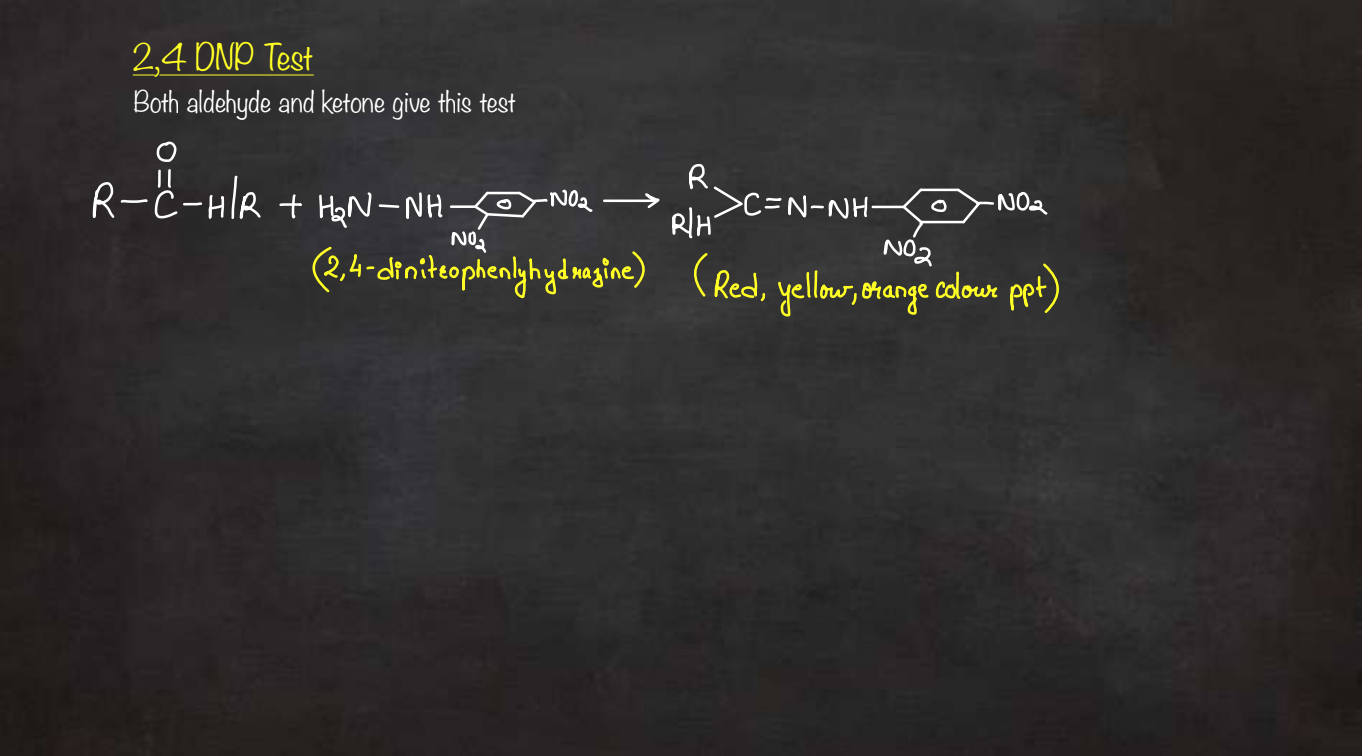 2,4 DNP Test
Both aldehyde and ketone give this test
O
R-C-H/R + H₂N-NH- -NO₂ → R C=N-NH- -NO₂
R/H
NO₂ NO₂
(2,4-dinitrophenlyhydrazine) (Red, yellow, orange colour ppt)